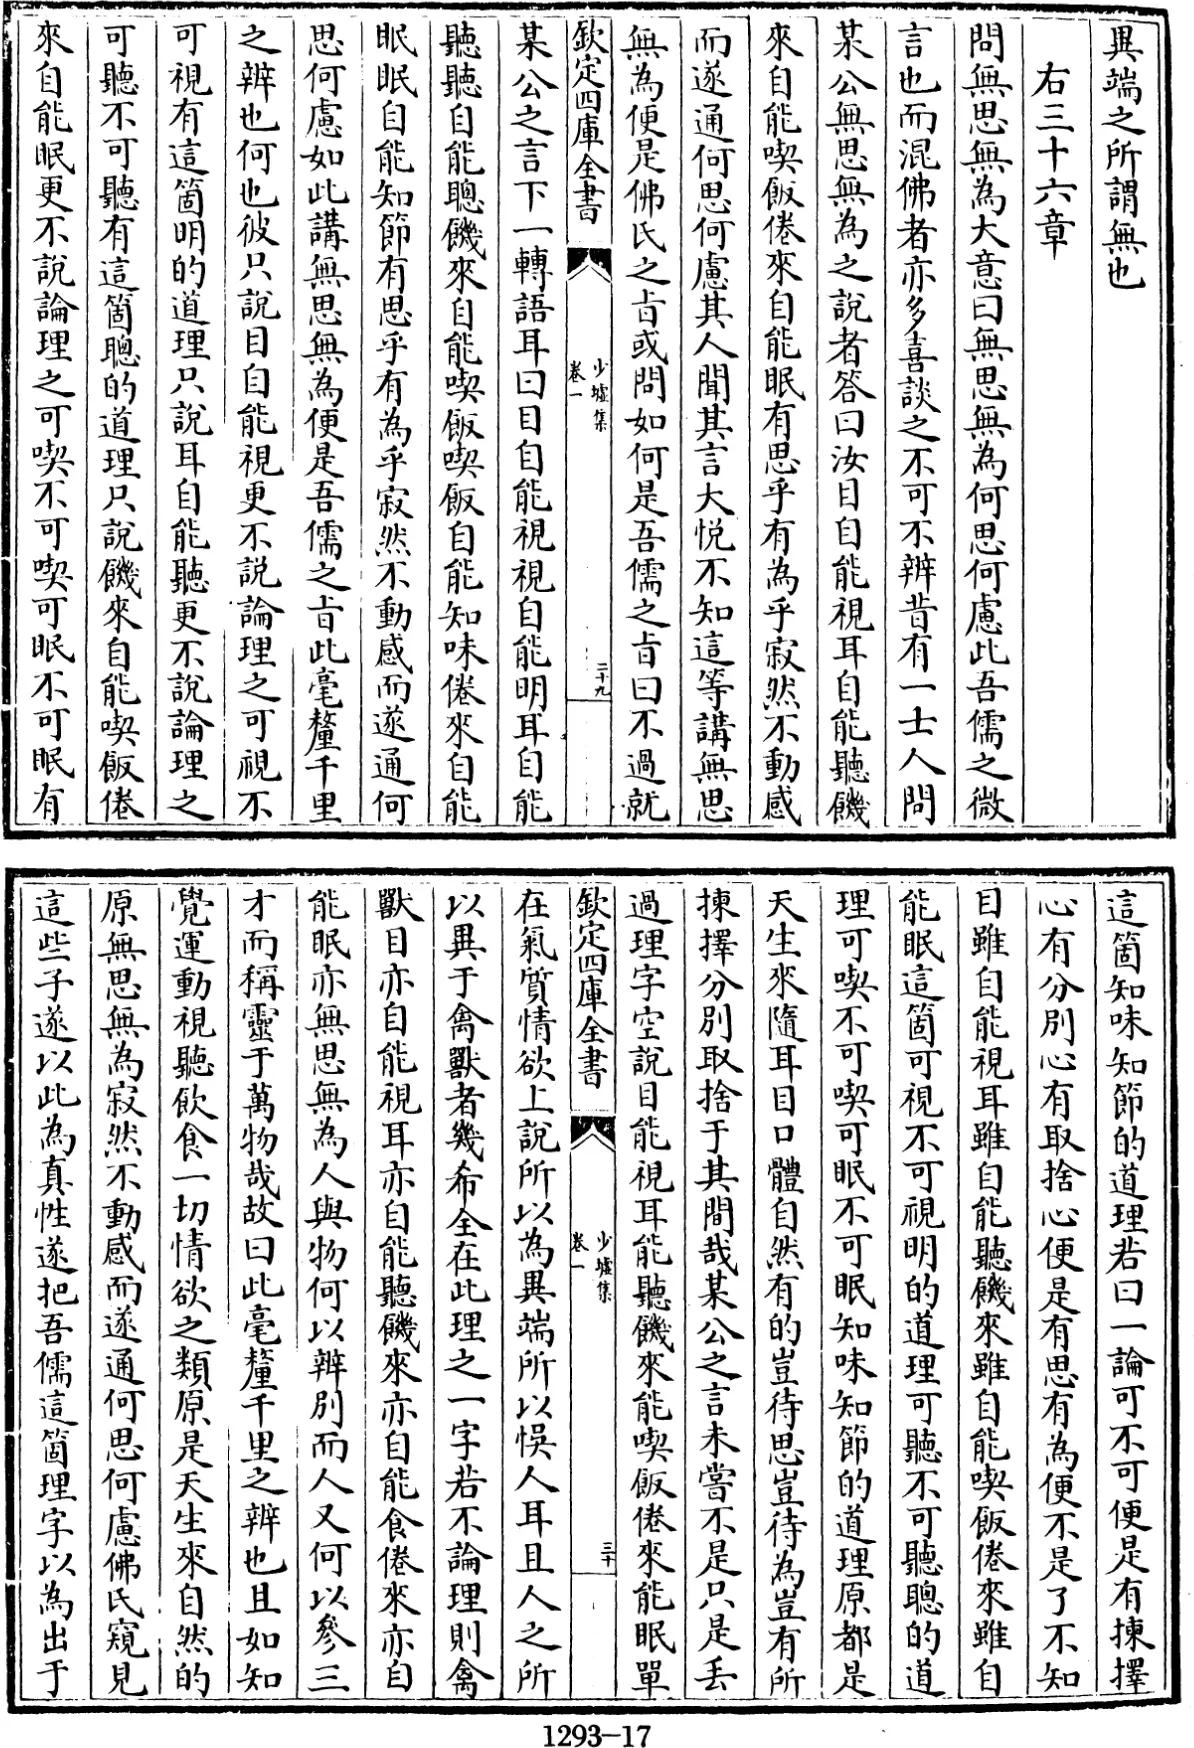 異端之所謂無也
右三十六章
問無思無為大意曰無思無為何思何慮此吾儒之微
言也而混佛者亦多喜談之不可不辨昔有一士人問
某公無思無為之說者答曰汝目自能視耳自能聽饑
來自能喫飯倦來自能眠有思乎有為乎寂然不動感
而遂通何思何慮其人聞其言大悅不知這等講無思
無為便是佛氏之㫖或問如何是吾儒之㫖曰不過就
欽定四庫全書
少墟集
卷一
二十九
某公之言下一轉語耳曰目自能視視自能明耳自能
聽聽自能聰饑來自能喫飯喫飯自能知味倦來自能
眠眠自能知節有思乎有為乎寂然不動感而遂通何
思何慮如此講無思無為便是吾儒之㫖此毫釐千里
之辨也何也彼只說目自能視更不說論理之可視不
可視有這箇明的道理只說耳自能聽更不說論理之
可聽不可聽有這箇聰的道理只說饑來自能喫飯倦
來自能眠更不說論理之可喫不可喫可眠不可眠有
這箇知味知節的道理若曰一論可不可便是有揀擇
心有分別心有取捨心便是有思有為便不是了不知
目雖自能視耳雖自能聽饑來雖自能喫飯倦來雖自
能眠這箇可視不可視明的道理可聽不可聽聰的道
理可喫不可喫可眠不可眠知味知節的道理原都是
天生來隨耳目口體自然有的豈待思豈待為豈有所
揀擇分別取捨于其間哉某公之言未嘗不是只是丟
過理字空說目能視耳能聽饑來能喫飯倦來能眠單
欽定四庫全書
少墟集
卷一
三十
在氣質情欲上說所以為異端所以悞人耳且人之所
以異于禽獸者幾希全在此理之一字若不論理則禽
獸目亦自能視耳亦自能聽饑來亦自能食倦來亦自
能眠亦無思無為人與物何以辨別而人又何以參三
才而稱靈于萬物哉故曰此毫釐千里之辨也且如知
覺運動視聽飲食一切情欲之類原是天生來自然的
原無思無為寂然不動感而遂通何思何慮佛氏窺見
這些子遂以此為真性遂把吾儒這箇理字以為出于
1293-17